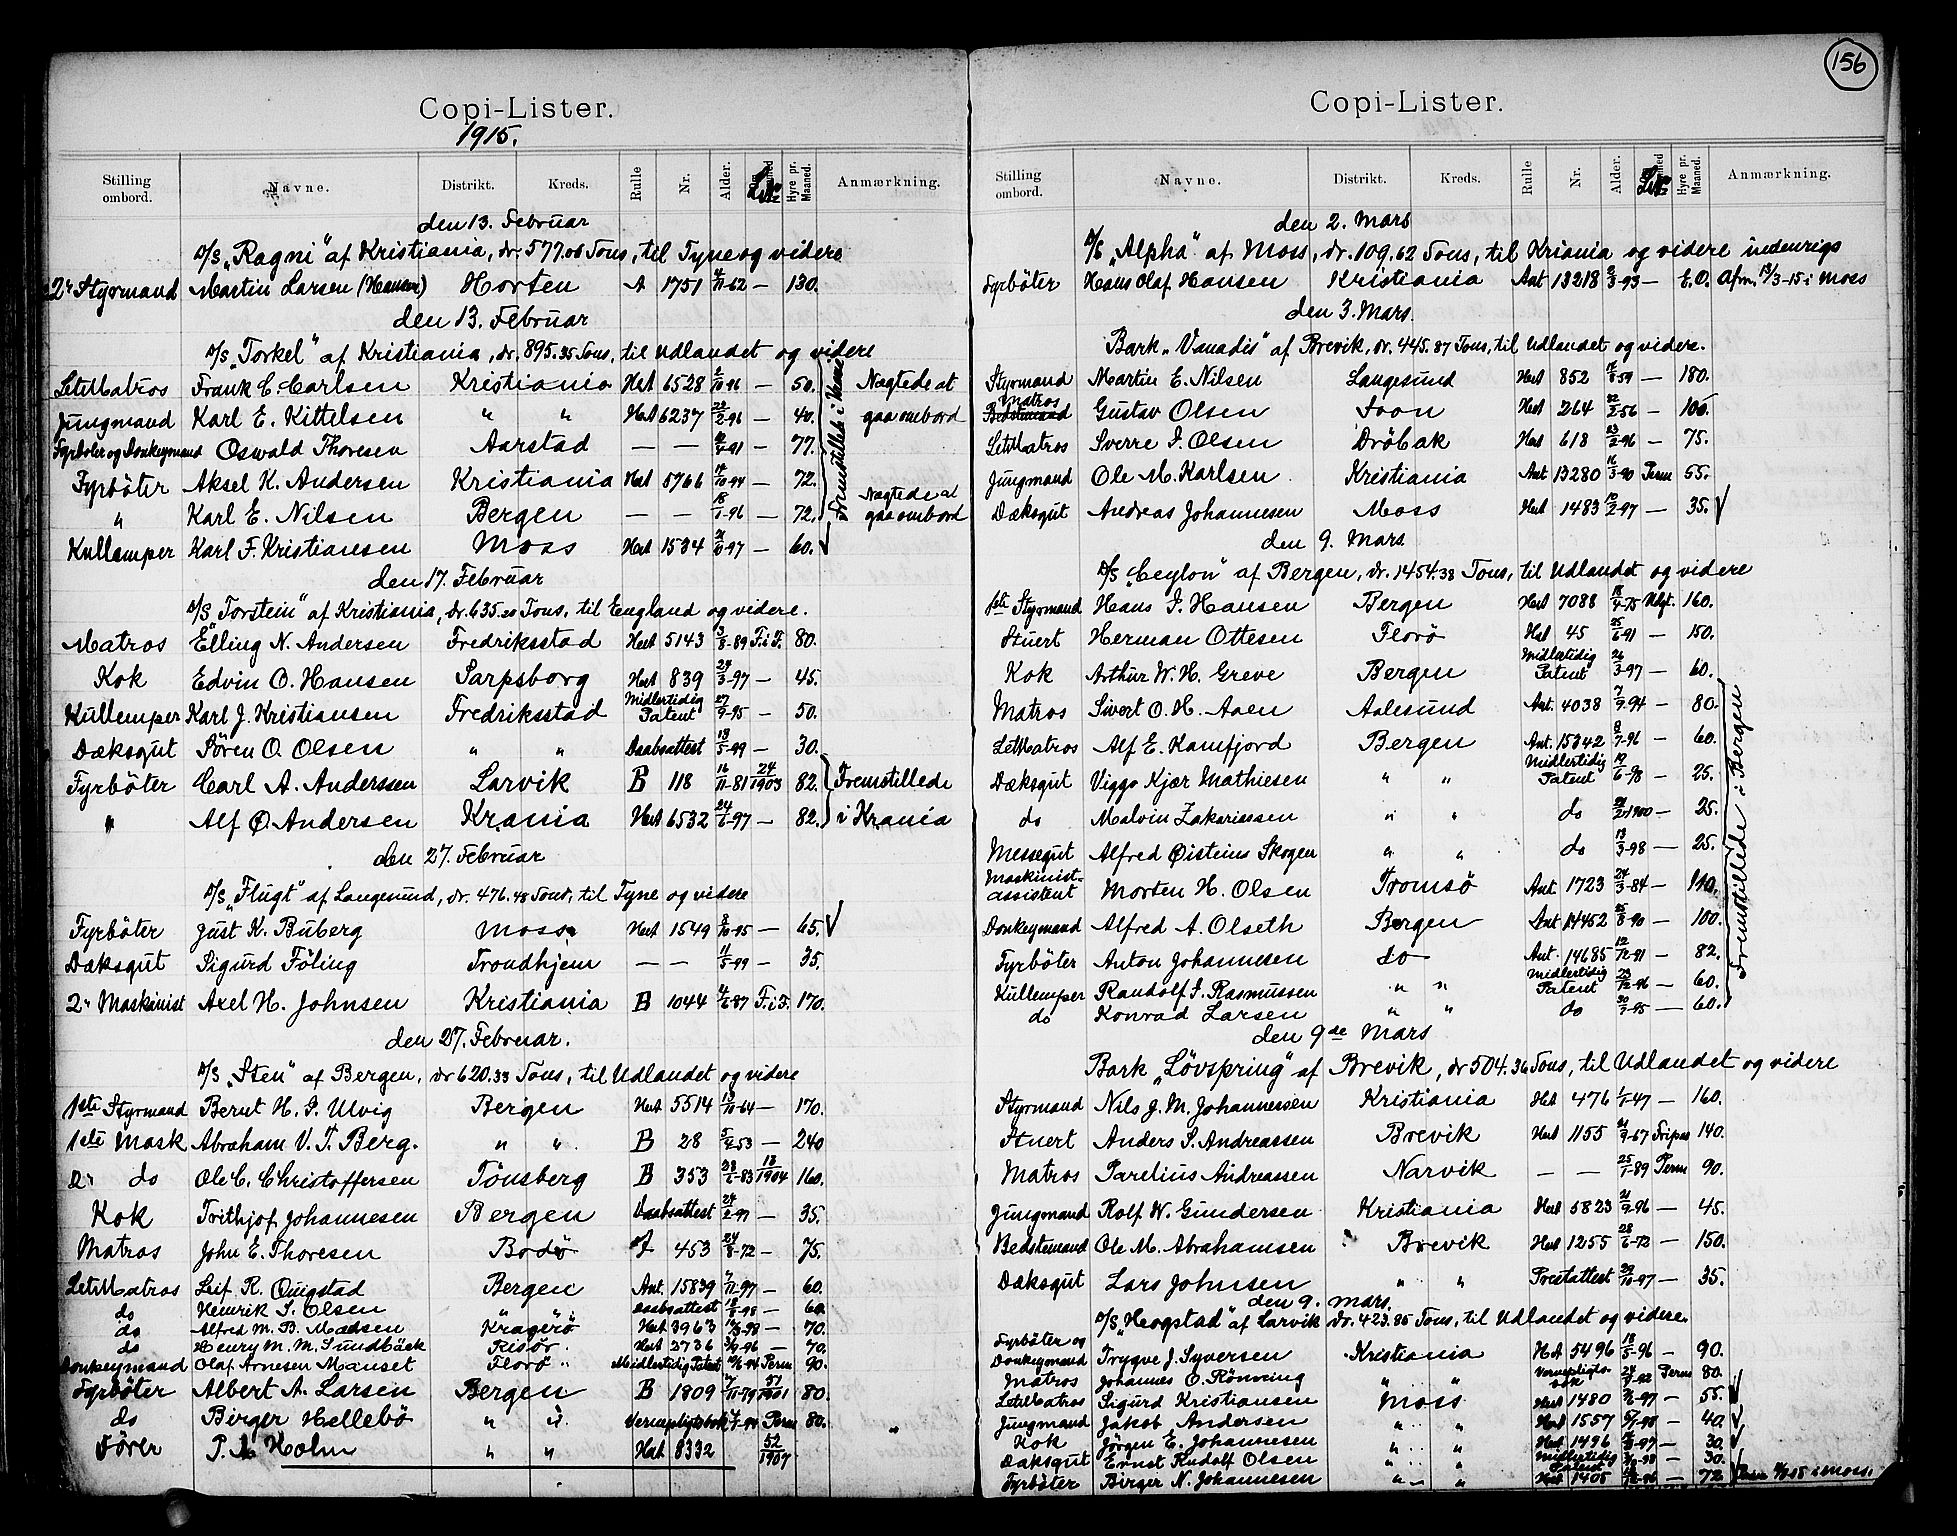 156
Copi-Lister.
1915.
Stilling ombord. Navne. Distrikt. Kreds. Rulle Nr. Alder. Hyre pr. Maaned. Anmærkning.
den 13. Februar
D/S „Ragni" af Kristiania, dr. 577.06 Tons, til Tyne og videre
2n Styrmand Martin Larsen (Hansen) Horten A 1751 -62 — 130.
den 13. Februar
D/S „Torkel" af Kristiania, dr. 895.35 Tons, til Udlandet og videre
LetMatros Frank C. Carlsen Kristiania Hert 6528 2/10-96 — 50. Nægtede at
Jungmand Karl E. Kittelsen " " Hert 6237 29/2-96 — 40. gaa ombord
Fyrböter og Donkeymand Oswald Thoresen Aarstad — — -91 — 77.
Fyrböter Aksel K. Andersen Kristiania Hert 5766 14/10-94 — 72. Nægtede at
" Karl E. Nilsen Bergen — — 18/1-96 — 72. gaa ombord
Kullemper Karl F. Kristiansen Moss Hert 1534 21/10-97 — 60.
den 17. Februar
D/S „Torstein" af Kristiania, dr. 635.20 Tons, til England og videre.
Matros Elling N. Andersen Fredriksstad Hert 5143 3/8-89 F.i.F. 80.
Kok Edvin O. Hansen Sarpsborg Hert 839 29/3-97 — 45.
Kullemper Karl J. Kristiansen Fredriksstad Midlertidig Patent 27/9-95 — 50.
Dæksgut Søren O. Olsen " " Daabsattest 18/5-99 — 30.
Fyrböter Carl A. Anderssen Larvik B 118 16/11-81 24/1903 82. Fremstillede
" Alf O. Andersen Krania Hert 6532 24/6-97 — 82. i Krania
den 27. Februar
D/S „Flugt" af Langesund, dr. 476.48 Tons, til Tyne og videre
Fyrböter Just K. Buberg Moss Hert 1549 8/10-95 — 65.
Dæksgut Sigurd Föling Trondhjem — — 11/5-99 — 35.
2n Maskinist Axel H. Johnsen Kristiania B 1044 4/6-87 F.i.F. 170.
den 27. Februar.
D/S „Sten" af Bergen, dr 620.33 Tons, til Udlandet og videre
1ste Styrmand Bernt H. J. Ulvig Bergen Hert 5514 13/10-64 — 170.
1ste Mask Abraham V. T. Berg. " " B 28 5/9-53 — 240
2n do Ole C. Christoffersen Tönsberg B 353 28/6-83 13/1904 160.
Kok Trithjof Johannesen Bergen Daabsattest 24/2-97 — 35.
Matros John E. Thoresen Bodø 453 24/8-72 — 75.
LetMatros Leif R. Quigstad Bergen Ant. 15839 7/11-97 — 60.
do Henrik S. Olsen Daabsattest 18/8-98 — 60.
do Alfred M. B. Madsen Kragerö Hert 3963 -98 — 70.
do Henry M. M. Sundbäck Risör. Hert 2736 -96 — 70.
Donkeymand Olaf Arnesen Manset Florö " Midlertidig Patent -94 Perm 90.
Fyrböter Albert A. Larsen Bergen B 1809 7/11-79 51/1901 80.
do Birger Hellebö " " Vernepligtsbok -94 Perm 80.
Förer P. A. Holm " " Hert 8332 52/1907
Fremstillet i Krania
Copi-Lister.
Stilling ombord. Navne. Distrikt. Kreds. Rulle Nr. Alder. Hyre pr. Maaned. Anmærkning.
den 2. Mars
D/S „Alpha" af Moss, dr. 109.62 Tons, til Kriania og videre indenrigs
Fyrböter Hans Olaf Hansen Kristiania Ant 13218 2/3-93 — E.O. Afm. 13/3-15 i Moss
den 3. Mars.
Bark „Vanadis" af Brevik, dr. 445.87 Tons, til Udlandet og videre.
Styrmand Martin E. Nilsen Langesund Hert 852 -59 — 180.
Matros Gustav Olsen Soon Hert 264 22/2-56 — 100.
LetMatros Sverre J. Olsen Dröbak Hert 618 23/2-96 — 75.
Jungmand Ole M. Karlsen Kristiania Ant 13280 11/3-90 Perm 55.
Dæksgut Andreas Johannesen Moss Hert 1483 12/2-97 — 35.
den 9. Mars
D/S „Ceylon" af Bergen, dr. 1454.38 Tons, til Udlandet og videre
1ste Styrmand Hans J. Hansen Bergen Hert 7088 18/4-75 Udgt. 160.
Stuert Herman Ottesen Florö Hert 45 25/6-91 — 150.
Kok Arthur W. H. Greve Bergen Midlertidig Patent 26/3-97 — 60.
Matros Sivert O. H. Aaen Aalesund Ant. 4038 7/9-94 — 80.
LetMatros Alf E. Kamfjord Bergen Ant. 15342 8/7-96 — 60.
Dæksgut Viggo Kjær Mathiesen " " Midlertidig Patent 14/6-98 — 25.
do Malvin Zakariassen " " do -1900 — 25.
Messegut Alfred Øisteius Skogen " " do 13/3-98 — 25.
Maskinist-assistent Morten H. Olsen Tromsö Ant 1723 24/3-84 — 110.
Donkeymand Alfred A. Olseth Bergen Ant 14452 25/8-90 — 100.
Fyrböter Anton Johannesen do Ant. 14685 12/12-91 — 82.
Kullemper Randolf J. Rasmussen " " Midlertidig Patent 23/12-96 — 60.
do Konrad Larsen " " do 30/3-95 — 60.
Fremstillede i Bergen
den 9de Mars
Bark „Lövspring" af Brevik, dr 504.36 Tons, til Udlandet og videre
Styrmand Nils J. M. Johannessen Kristiania Hert 476 -47 — 160.
Stuert Anders S. Andreassen Brevik Hert 1155 21/9-67 Fripas 140.
Matros Parelius Andreassen Narvik — — 25/1-89 Perm 90.
Jungmand Rolf W. Gundersen Kristiania Hert 5823 21/9-96 — 45.
Bedstemand Ole M. Abrahamsen Brevik Hert 1255 28/6-72 — 150.
Dæksgut Lars Johnsen " " Prestattest 29/10-97 — 35.
den 9. Mars.
D/S „Hogstad" af Larvik dr. 423.85 Tons, til Udlandet og videre.
Fyrböter og Donkeymand Trygve J. Syversen Kristiania Hert 5496 18/5-96 — 90.
Matros Johannes O. Rönning " " -92 Perm 80.
LetMatros Sigurd Kristiansen Moss Hert 1480 -97 — 55.
Jungmand Jakob Andersen " " Hert 1557 -98 — 40.
Kok Jörgen E. Johannesen " " Hert 1496 -97 — 30.
Dæksgut Ernst Rudolf Olsen " " Midlertidig Patent -98 — 30.
Fyrböter Birger N. Johannesen " " Hert 1405 -96 — 72. i Moss.